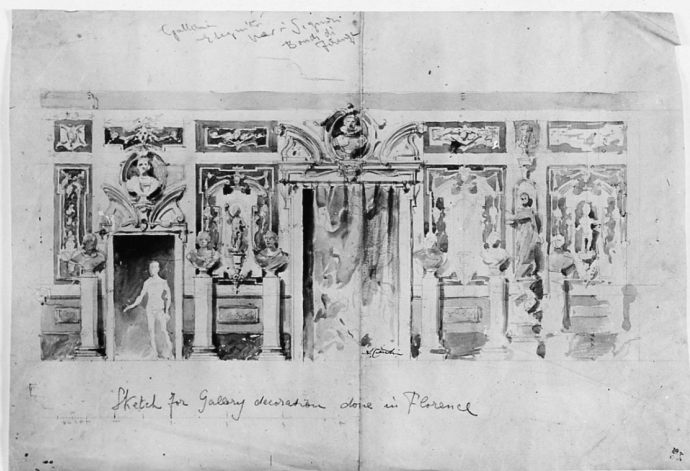 Galleria
eseguita per i Signori
Bondi di
Firenze
Sketch for Gallery decoration done in Florence